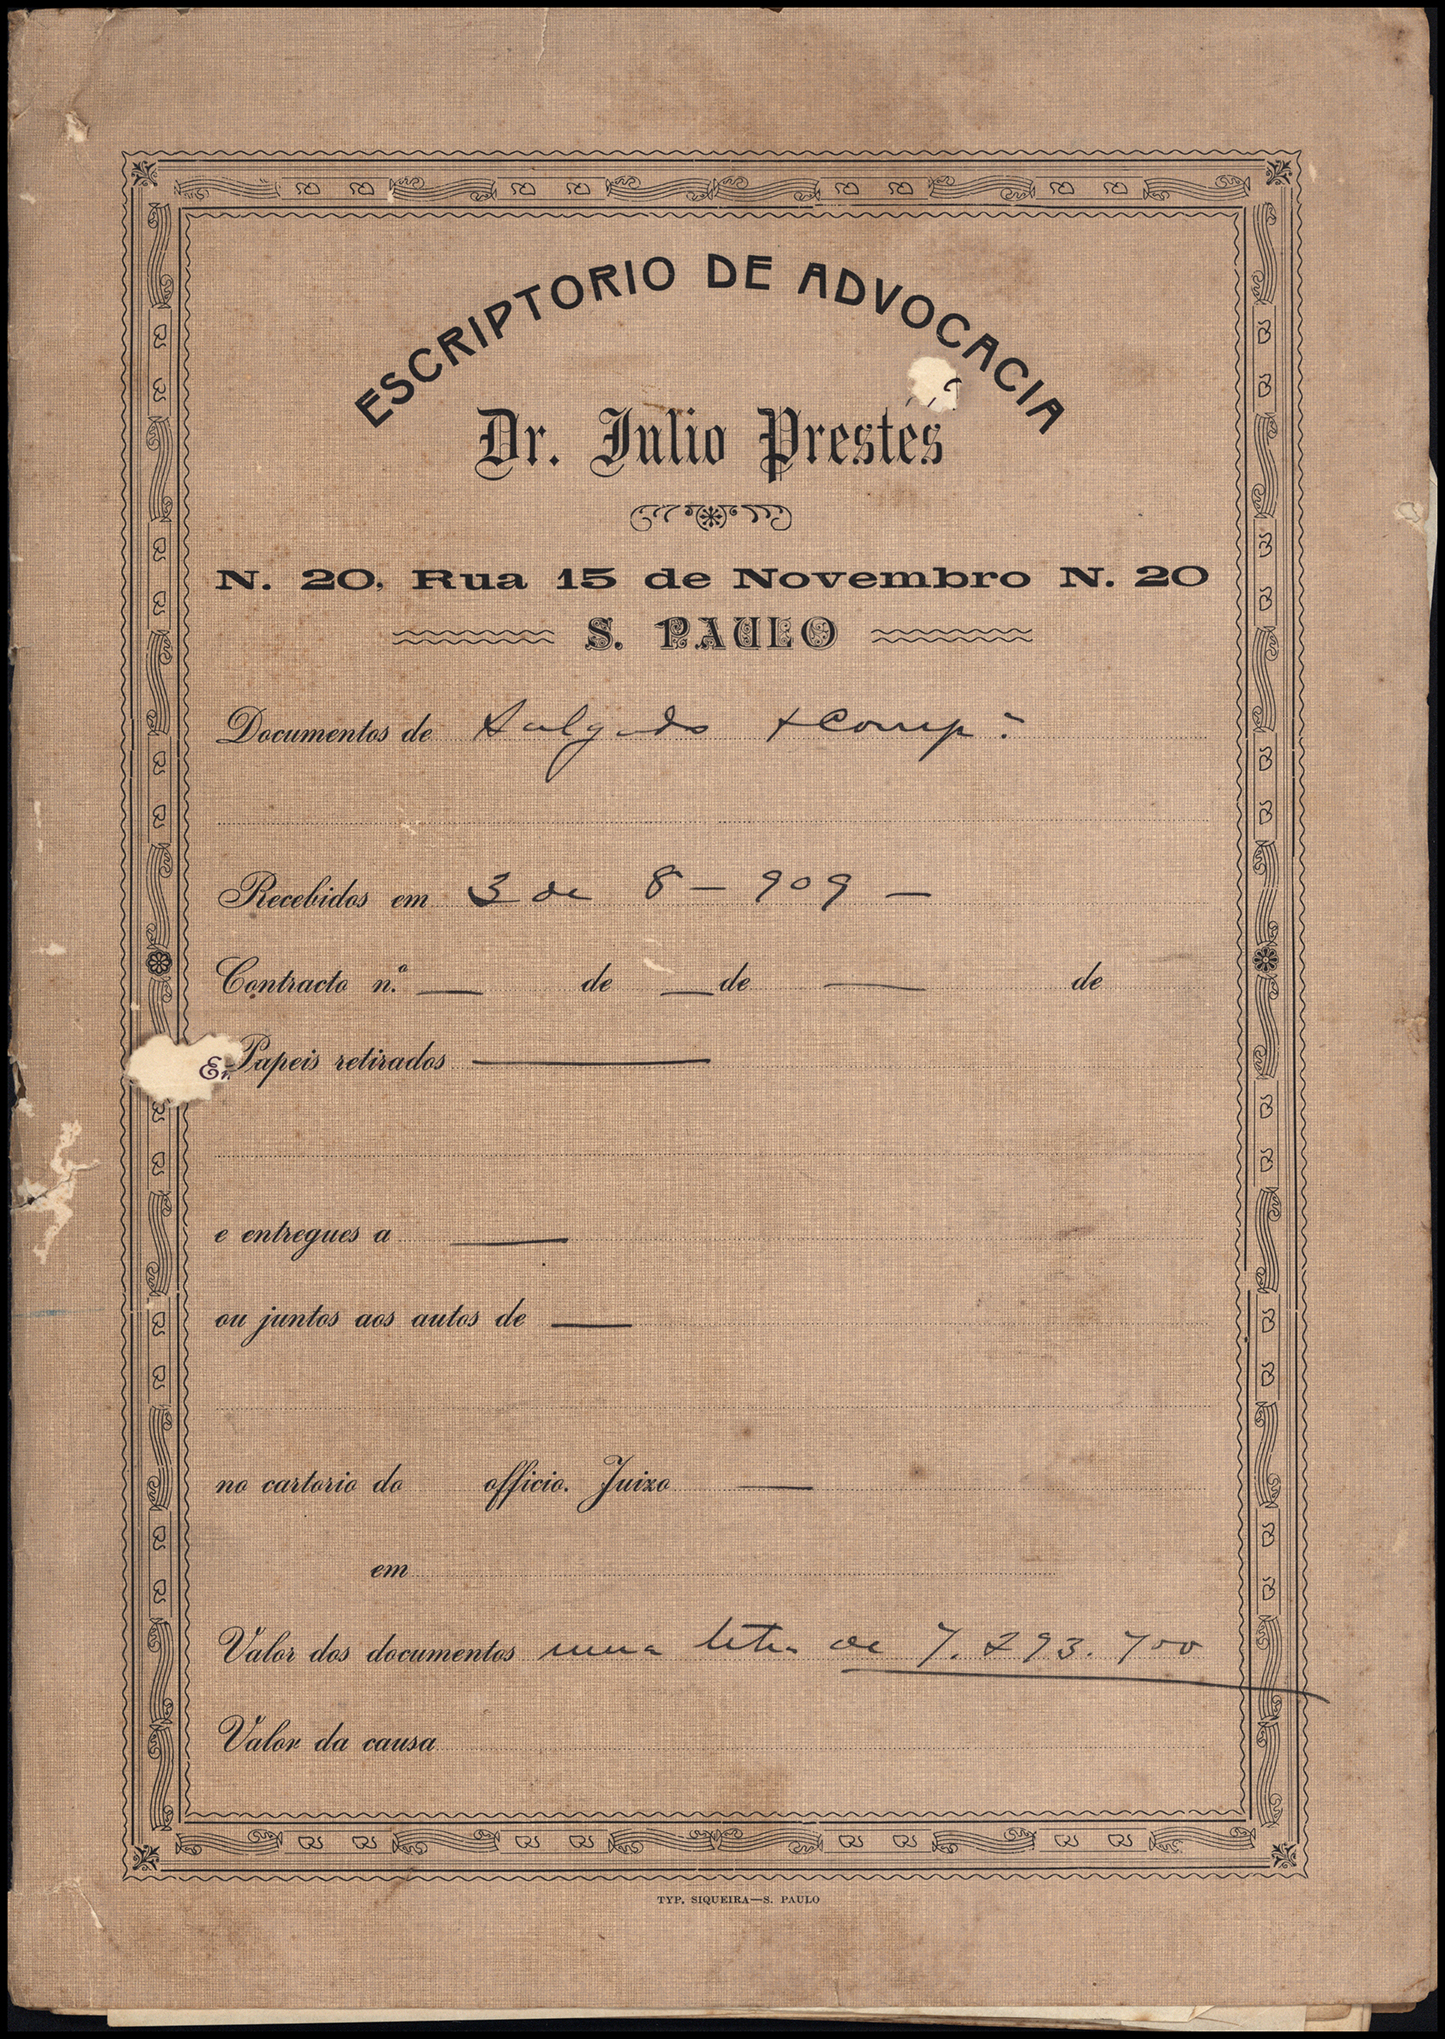 ESCRIPTORIO DE ADVOCACIA
Dr. Julio Prestes
N. 20, Rua 15 de Novembro N. 20
S. PAULO
Documentos de Salgado & Comp.ª
Recebidos em 3 de 8 - 909 -
Contracto n.º — de — de — de
Papeis retirados —
e entregues a —
ou juntos aos autos de —
no cartorio do officio. Juizo —
em
Valor dos documentos uma letra de 7.293.700
Valor da causa
TYP. SIQUEIRA—S. PAULO